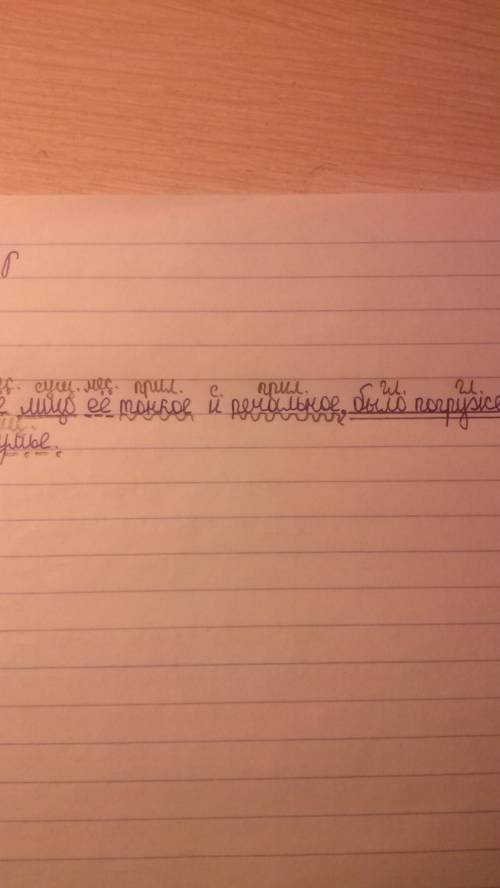 сущ. мес. прил. с. прил. гл. гл.
лицо её тонкое и печальное, было погруже
умье.